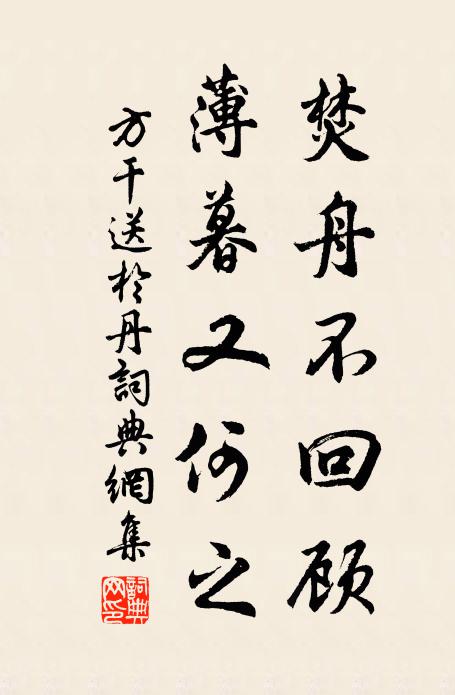 焚舟不回顾
薄暮又何之
方干送於丹詞典網集
詞典网印